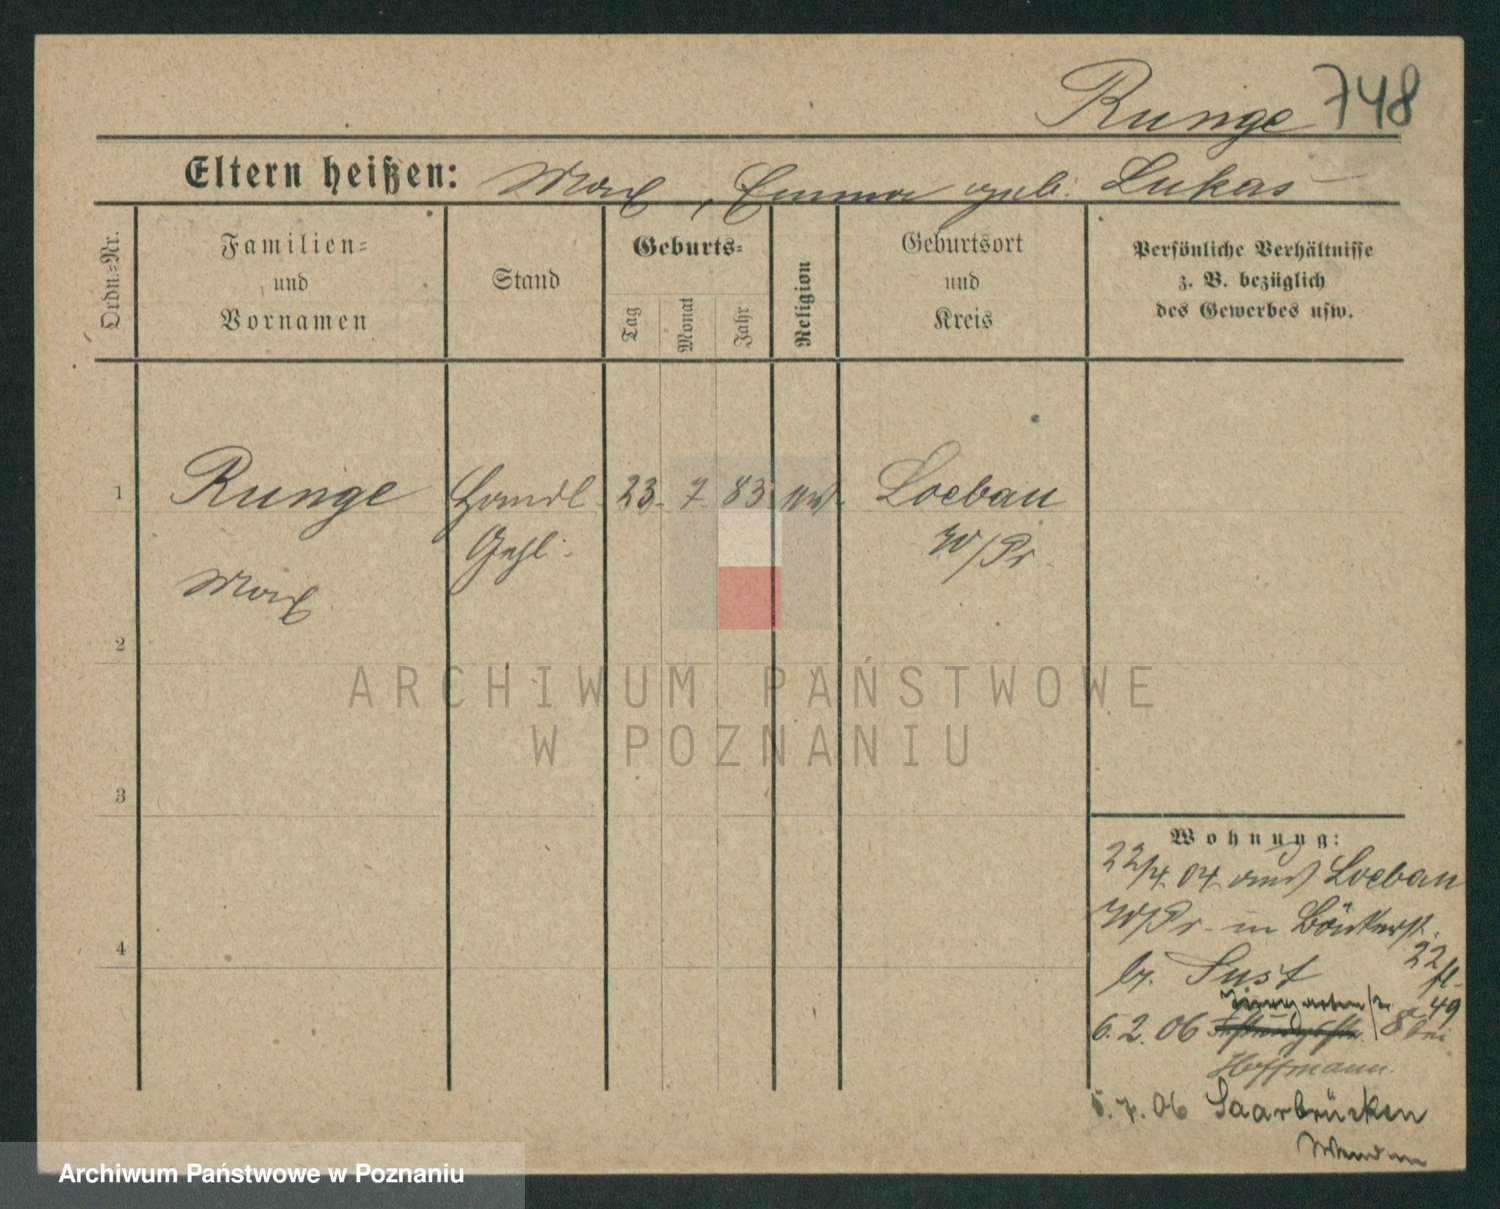 Runge 748
Eltern heißen: Max, Emma geb. Lukas
Ordn.=Nr.
Familien=
und
Vornamen
Stand
Geburts=
Tag
Monat
Jahr
Religion
Geburtsort
und
Kreis
Persönliche Verhältnisse
z. B. bezüglich
des Gewerbes usw.
1 Runge Handl. 23. 7. 83. Loebau
Gehl. W/Pr.
Max
2
3
4
ARCHIWUM PAŃSTWOWE
W POZNANIU
Wohnung:
22/4. 04. aus Loebau
W/Pr. in
22
br. Sust
49
6. 2. 06 8
Hoffmann
5. 7. 06 Saarbrücken
Archiwum Państwowe w Poznaniu